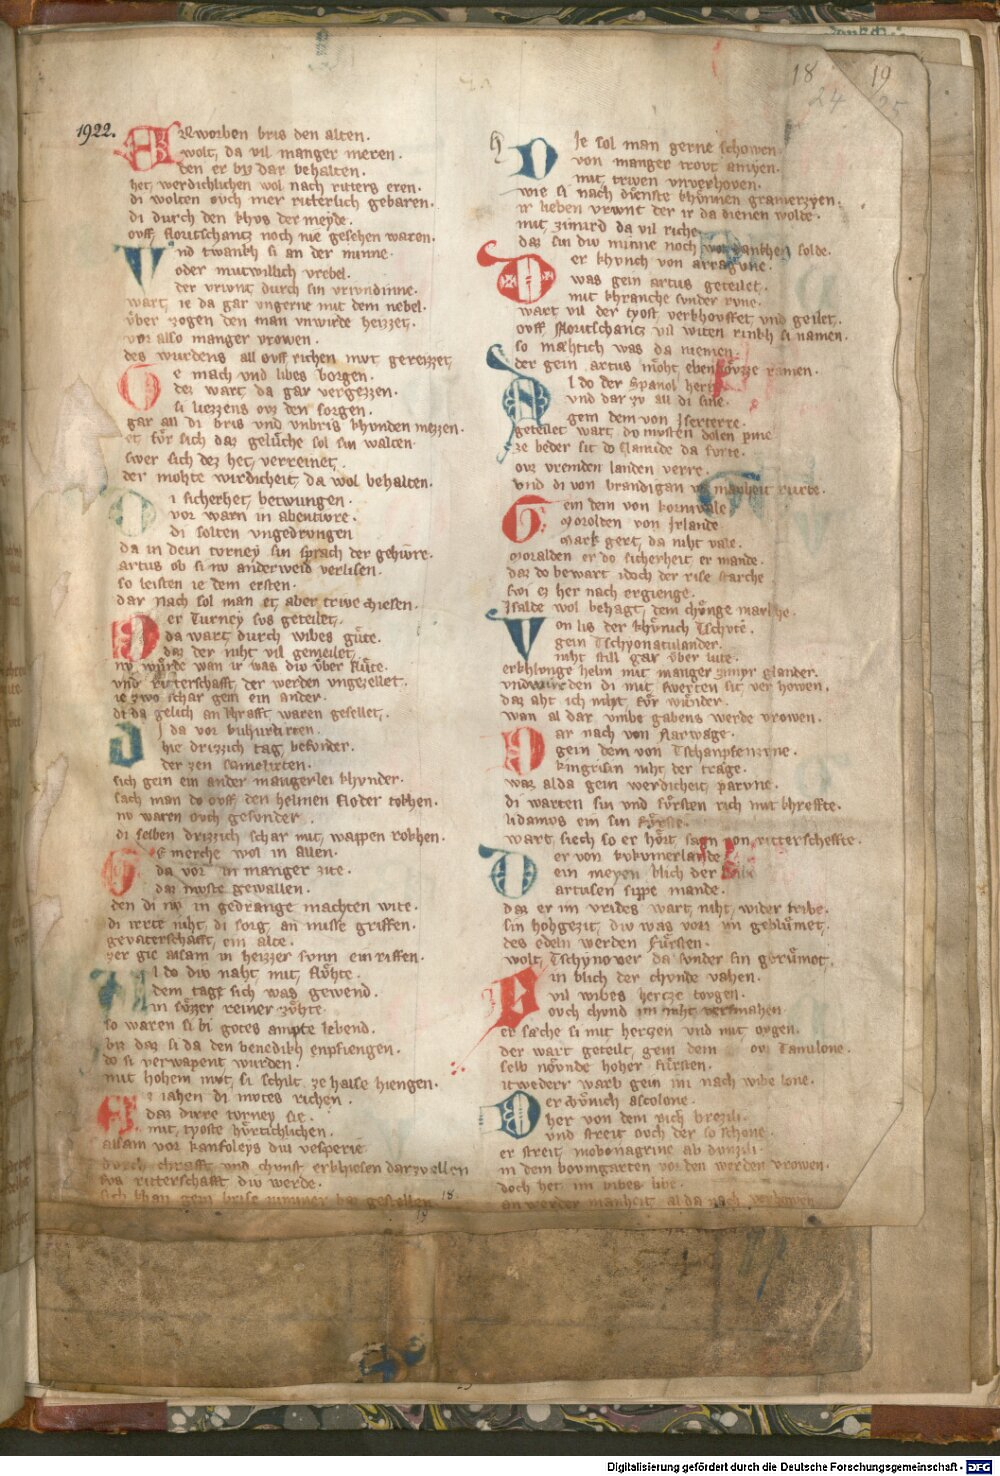 18 19
24 25
1922.
ERworben bris den alten.
wolt, da vil manger meren.
den er by dar behalten.
het, werdichlichen wol nach ritters eren.
di wolten ouch mer ritterlich gebaren.
di durch den khus der meyde.
ouff floritschantz noch nie gesehen waron.
Vnd twankh si an der minne.
oder mutwillich vrebel.
der vriunt durch sin vriundinne.
wart, ie da gar ungerne mit dem nebel.
über zogen den man unwirde heizzet.
vor also manger vrowen.
des wurdens all ouff richen mut gereizzet,
e mach und libes borgen.
dez wart da gar vergezzen.
si liezzens ouz den sorgen.
gar all di bris und unbris khunden mezzen.
et für sich daz gelüche sol sin walten
swer sich dez het, verreinet.
der mohte wirdicheit, da wol behalten.
Di sicherhet, betwungen.
vor warn in abentiwre.
di solten ungedrungen
da in dem torney sin sprach der gehiwre.
artus ob si nv anderweid verlisen.
so leisten ie dem ersten.
dar nach sol man et aber triwe chiesen.
Der Turney sus geteilet,
da wart durch wibes güte.
daz der niht vil gemeilet,
nv würde wan ir was diu über flüte.
und ritterschafft, der werden ungezellet.
ie zwo schar gein ein ander.
di da gelich an khrafft waren gesellet,
da vor buhurtirten.
hie drizzich tag, besunder.
der zen samelirten.
sich gein ein ander mangerlei khunder.
sach man do ouff, den helmen floder tokhen.
nv waren ouch gesunder.
di selben drizzich schar mit, wappen rokhen.
merche wol in allen.
da vor in maniger zite.
daz muste gewallen.
den di nv in gedrange machten wite.
di irrte niht, di sorg, an misse griffen.
gevaterschafft, ein alte.
der gie alsam in heizzer sunn ein riffen.
Al do diu naht mit, flöhte.
dem tage sich was gewend.
in süzzer reiner zühte.
so waren si bi gotes ampte lebend.
biz daz si da den benedikh enpfiengen.
do si verwapent wurden.
mit hohem mut, si schilt ze halse hiengen.
iahen di mutes richen.
daz dirre torney sie.
mit, tyoste hürtichlichen.
alsam vor kanfoleys diu vesperie
durch chrafft, und chunst erkhiesen dar zu ellen
swa ritterschafft diu werde.
sich khan gein brise nimmer baz gesellen.
18.
19
h
Die sol man gerne schowen
von manger trovt amyen.
mit, triwen unverhowen.
wie si nach dienste khünnen gramerzyen.
ir lieben vriunt der ir da dienen wolde.
mit zimird da vil riche
daz sin diu minne noch von dankhen solde.
Der khunch von arragune.
was gein artus geteilet.
mit khranche sunder rune.
wart vil der tyost verkhouffet, und geilet.
ouff floritschantz vil witen rinkh si namen.
so mæhtich was da niemen.
der gein artus möht, eben houzze ramen.
Al do der Spanol herre
und dar zu all di sine.
gein dem von Iserterre.
geteilet wart, dv musten dolen pine
ze beder sit do Clamide da furte.
ouz vremden landen verre.
und di von brandigan manheit rurte.
Gein dem von kornwale
Morolten von Irlande
Mark gert, da niht vale.
Moralden er do sicherheit er mande.
daz do bewart idoch der rise starche
swi ez her nach ergienge.
Isalde wol behagt, dem chünge markhe.
Von lis der khünich Tschute.
gein Tschyonatulander.
niht still gar über lute.
erkhlunge helm mit manger zimyr glander.
und wurden di mit swerten sit, ver howen.
daz aht ich niht, für wunder.
wan al dar umbe gabens werde vrowen.
Dar nach von Narwage.
gein dem von Tschanpfenzyne.
Kingrisin niht, der træge.
waz alda gein werdicheit, paryne.
di warten sin und fürsten rich mit khreffte.
lidamus ein sin fürste.
wart, siech so er hört, sagn von ritterscheffte.
Der von kukumerlande
ein meyen blich der
artusen sippe mande.
daz er im vrides wart, niht, wider tribe.
sin hohgezit, diu was vorr im geblümet,
des edeln werden fürsten.
wolt, Tschynover da sunder sin gerümet,
Ein blich der chunde vahen.
vil wibes hertze tovgen.
ouch chund im niht versmahen
er sæche si mit hertzen und mit ovgen.
der wart geteilt, gein dem ovz Tamilone.
selb nöunde hoher fürsten.
itwederr warb gein im nach wibe lone.
Der chünich ascolone.
her von dem rich brezili.
und streit ouch der so schone
er streit mobonagrine ab dunzili
in dem boumgarten vor den werden vrowen.
doch het im wibes libe.
an werder manheit al da nach verhowen.
Digitalisierung gefördert durch die Deutsche Forschungsgemeinschaft - DFG